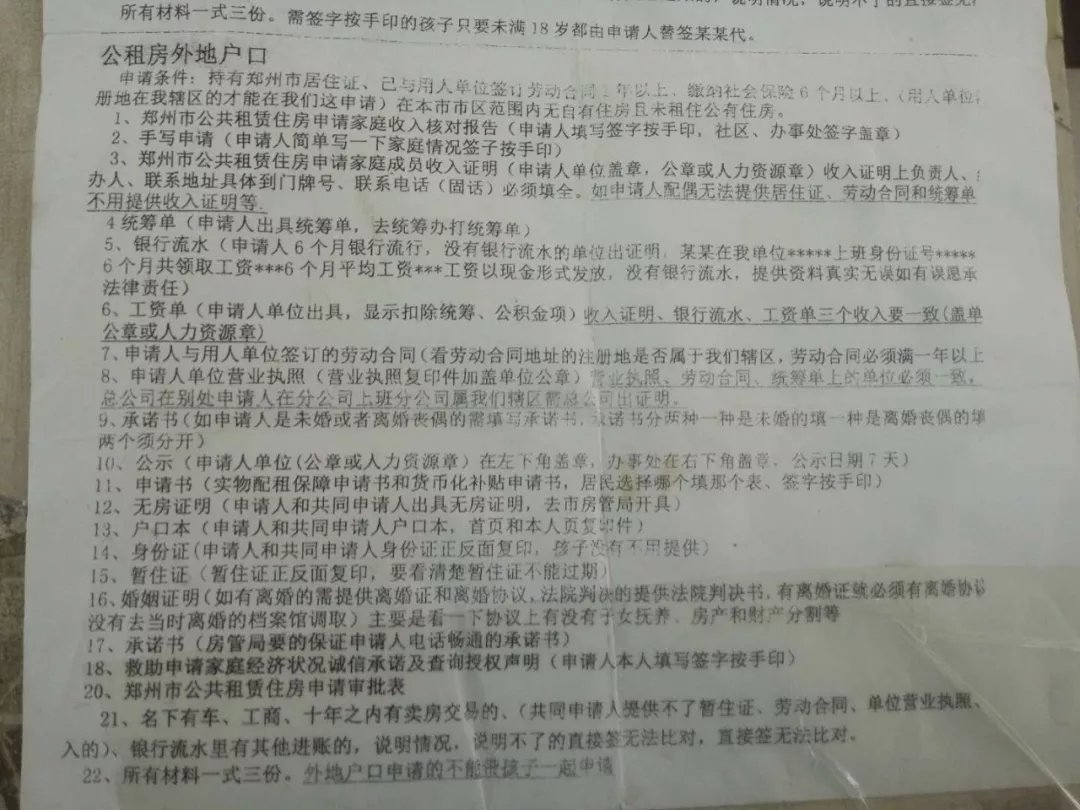 说明情况，说明不了的直接签无
所有材料一式三份。需签字按手印的孩子只要未满18岁都由申请人替签某某代。
公租房外地户口
申请条件：持有郑州市居住证、已与用人单位签订劳动合同1年以上、缴纳社会保险6个月以上、（用人单位
册地在我辖区的才能在我们这申请）在本市市区范围内无自有住房且未租住公有住房。
1、郑州市公共租赁住房申请家庭收入核对报告（申请人填写签字按手印，社区、办事处签字盖章）
2、手写申请（申请人简单写一下家庭情况签子按手印）
3、郑州市公共租赁住房申请家庭成员收入证明（申请人单位盖章，公章或人力资源章）收入证明上负责人、
办人、联系地址具体到门牌号、联系电话（固话）必须填全。如申请人配偶无法提供居住证、劳动合同和统筹单
不用提供收入证明等.
4统筹单（申请人出具统筹单，去统筹办打统筹单）
5、银行流水（申请人6个月银行流行，没有银行流水的单位出证明，某某在我单位*****上班身份证号*****
6个月共领取工资***6个月平均工资***工资以现金形式发放，没有银行流水，提供资料真实无误如有误愿承
法律责任）
6、工资单（申请人单位出具，显示扣除统筹、公积金项）收入证明、银行流水、工资单三个收入要一致(盖单
公章或人力资源章)
7、申请人与用人单位签订的劳动合同（看劳动合同地址的注册地是否属于我们辖区，劳动合同必须满一年以上
8、申请人单位营业执照（营业执照复印件加盖单位公章）营业执照、劳动合同、统筹单上的单位必须一致。
总公司在别处申请人在分公司上班分公司属我们辖区需总公司出证明。
9、承诺书（如申请人是未婚或者离婚丧偶的需填写承诺书，承诺书分两种一种是未婚的填一种是离婚丧偶的填
两个须分开）
10、公示（申请人单位(公章或人力资源章）在左下角盖章，办事处在右下角盖章，公示日期7天）
11、申请书（实物配租保障申请书和货币化补贴申请书，居民选择哪个填那个表、签字按手印）
12、无房证明（申请人和共同申请人出具无房证明，去市房管局开具）
13、户口本（申请人和共同申请人户口本，首页和本人页复印件）
14、身份证(申请人和共同申请人身份证正反面复印，孩子没有不用提供）
15、暂住证（暂住证正反面复印，要看清楚暂住证不能过期）
16、婚姻证明(如有离婚的需提供离婚证和离婚协议,法院判决的提供法院判决书，有离婚证就必须有离婚协议
没有去当时离婚的档案馆调取）主要是看一下协议上有没有子女抚养、房产和财产分割等
17、承诺书（房管局要的保证申请人电话畅通的承诺书）
18、救助申请家庭经济状况诚信承诺及查询授权声明（申请人本人填写签字按手印）
20、郑州市公共租赁住房申请审批表
21、名下有车、工商、十年之内有卖房交易的、（共同申请人提供不了暂住证、劳动合同、单位营业执照、
入的）、银行流水里有其他进账的，说明情况，说明不了的直接签无法比对，直接签无法比对。
22、所有材料一式三份。外地户口申请的不能带孩子一起申请